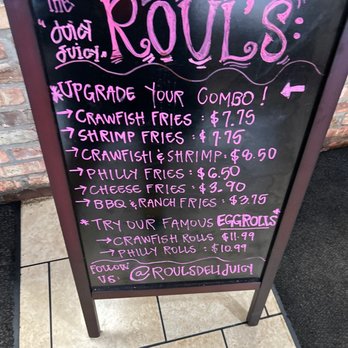 the
"Juicy
Juicy" ROUL'S:
*UPGRADE YOUR COMBO! ←
→CRAWFISH FRIES: $7.75
→SHRIMP FRIES: $7.75
→CRAWFISH & SHRIMP: $8.50
→PHILLY FRIES: $6.50
→CHEESE FRIES: $3.90
→BBQ & RANCH FRIES: $3.75
*TRY OUR FAMOUS EGGROLLS*
→CRAWFISH ROLLS $11.99
→PHILLY ROLLS: $10.99
FOLLOW
US: @ROULSDELIJUICY